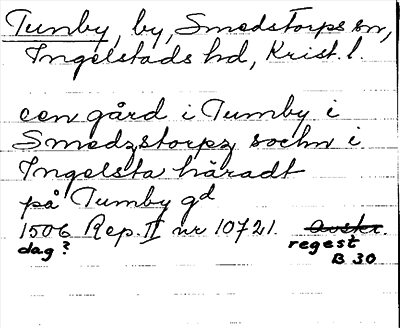 Tumby, by, Smedstorps sn,
Ingelstads hd, Krist. l.
een gård i Tumby i
Smedzstorpz sochn i
Ingelsta häradt
på Tumby gd
1506 Rep. II nr 10721. Avskr.
dag? regest
B 30